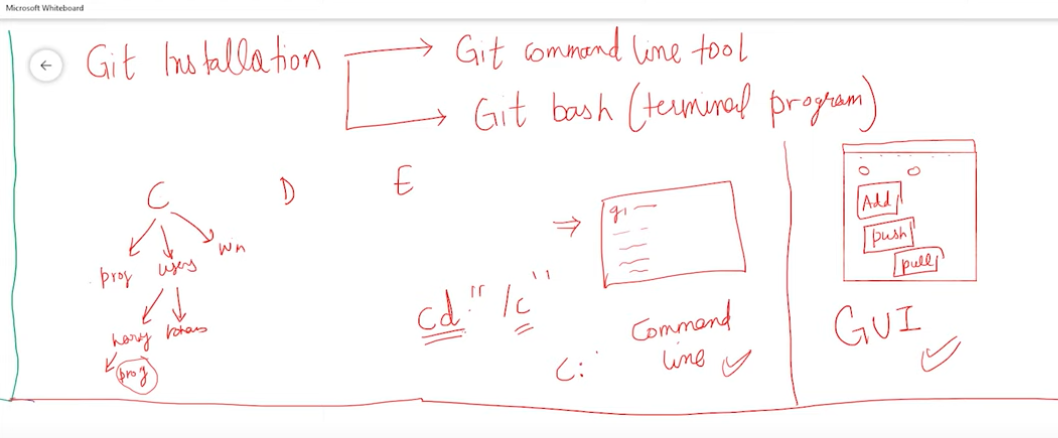 Microsoft Whiteboard
Git Installation
Git command line tool
Git bash (terminal program)
C D E
prog users wn
harry
prog
cd "/c"
C:
gi
Command
line
Add
push
pull
GUI